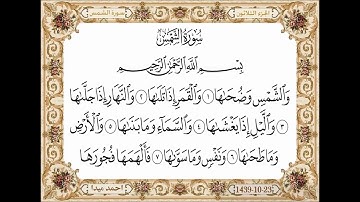 الجزء الثلاثون
سورة الشمس
سُورَةُ الشَّمْسِ
بِسْمِ اللَّهِ الرَّحْمَٰنِ الرَّحِيمِ
وَالشَّمْسِ وَضُحَىٰهَا ١ وَالْقَمَرِ إِذَا تَلَىٰهَا ٢ وَالنَّهَارِ إِذَا جَلَّىٰهَا
٣ وَالَّيْلِ إِذَا يَغْشَىٰهَا ٤ وَالسَّمَآءِ وَمَا بَنَىٰهَا ٥ وَالْأَرْضِ
وَمَا طَحَىٰهَا ٦ وَنَفْسٍ وَمَا سَوَّىٰهَا ٧ فَأَلْهَمَهَا فُجُورَهَا
احمد ميدا
1439-10-23